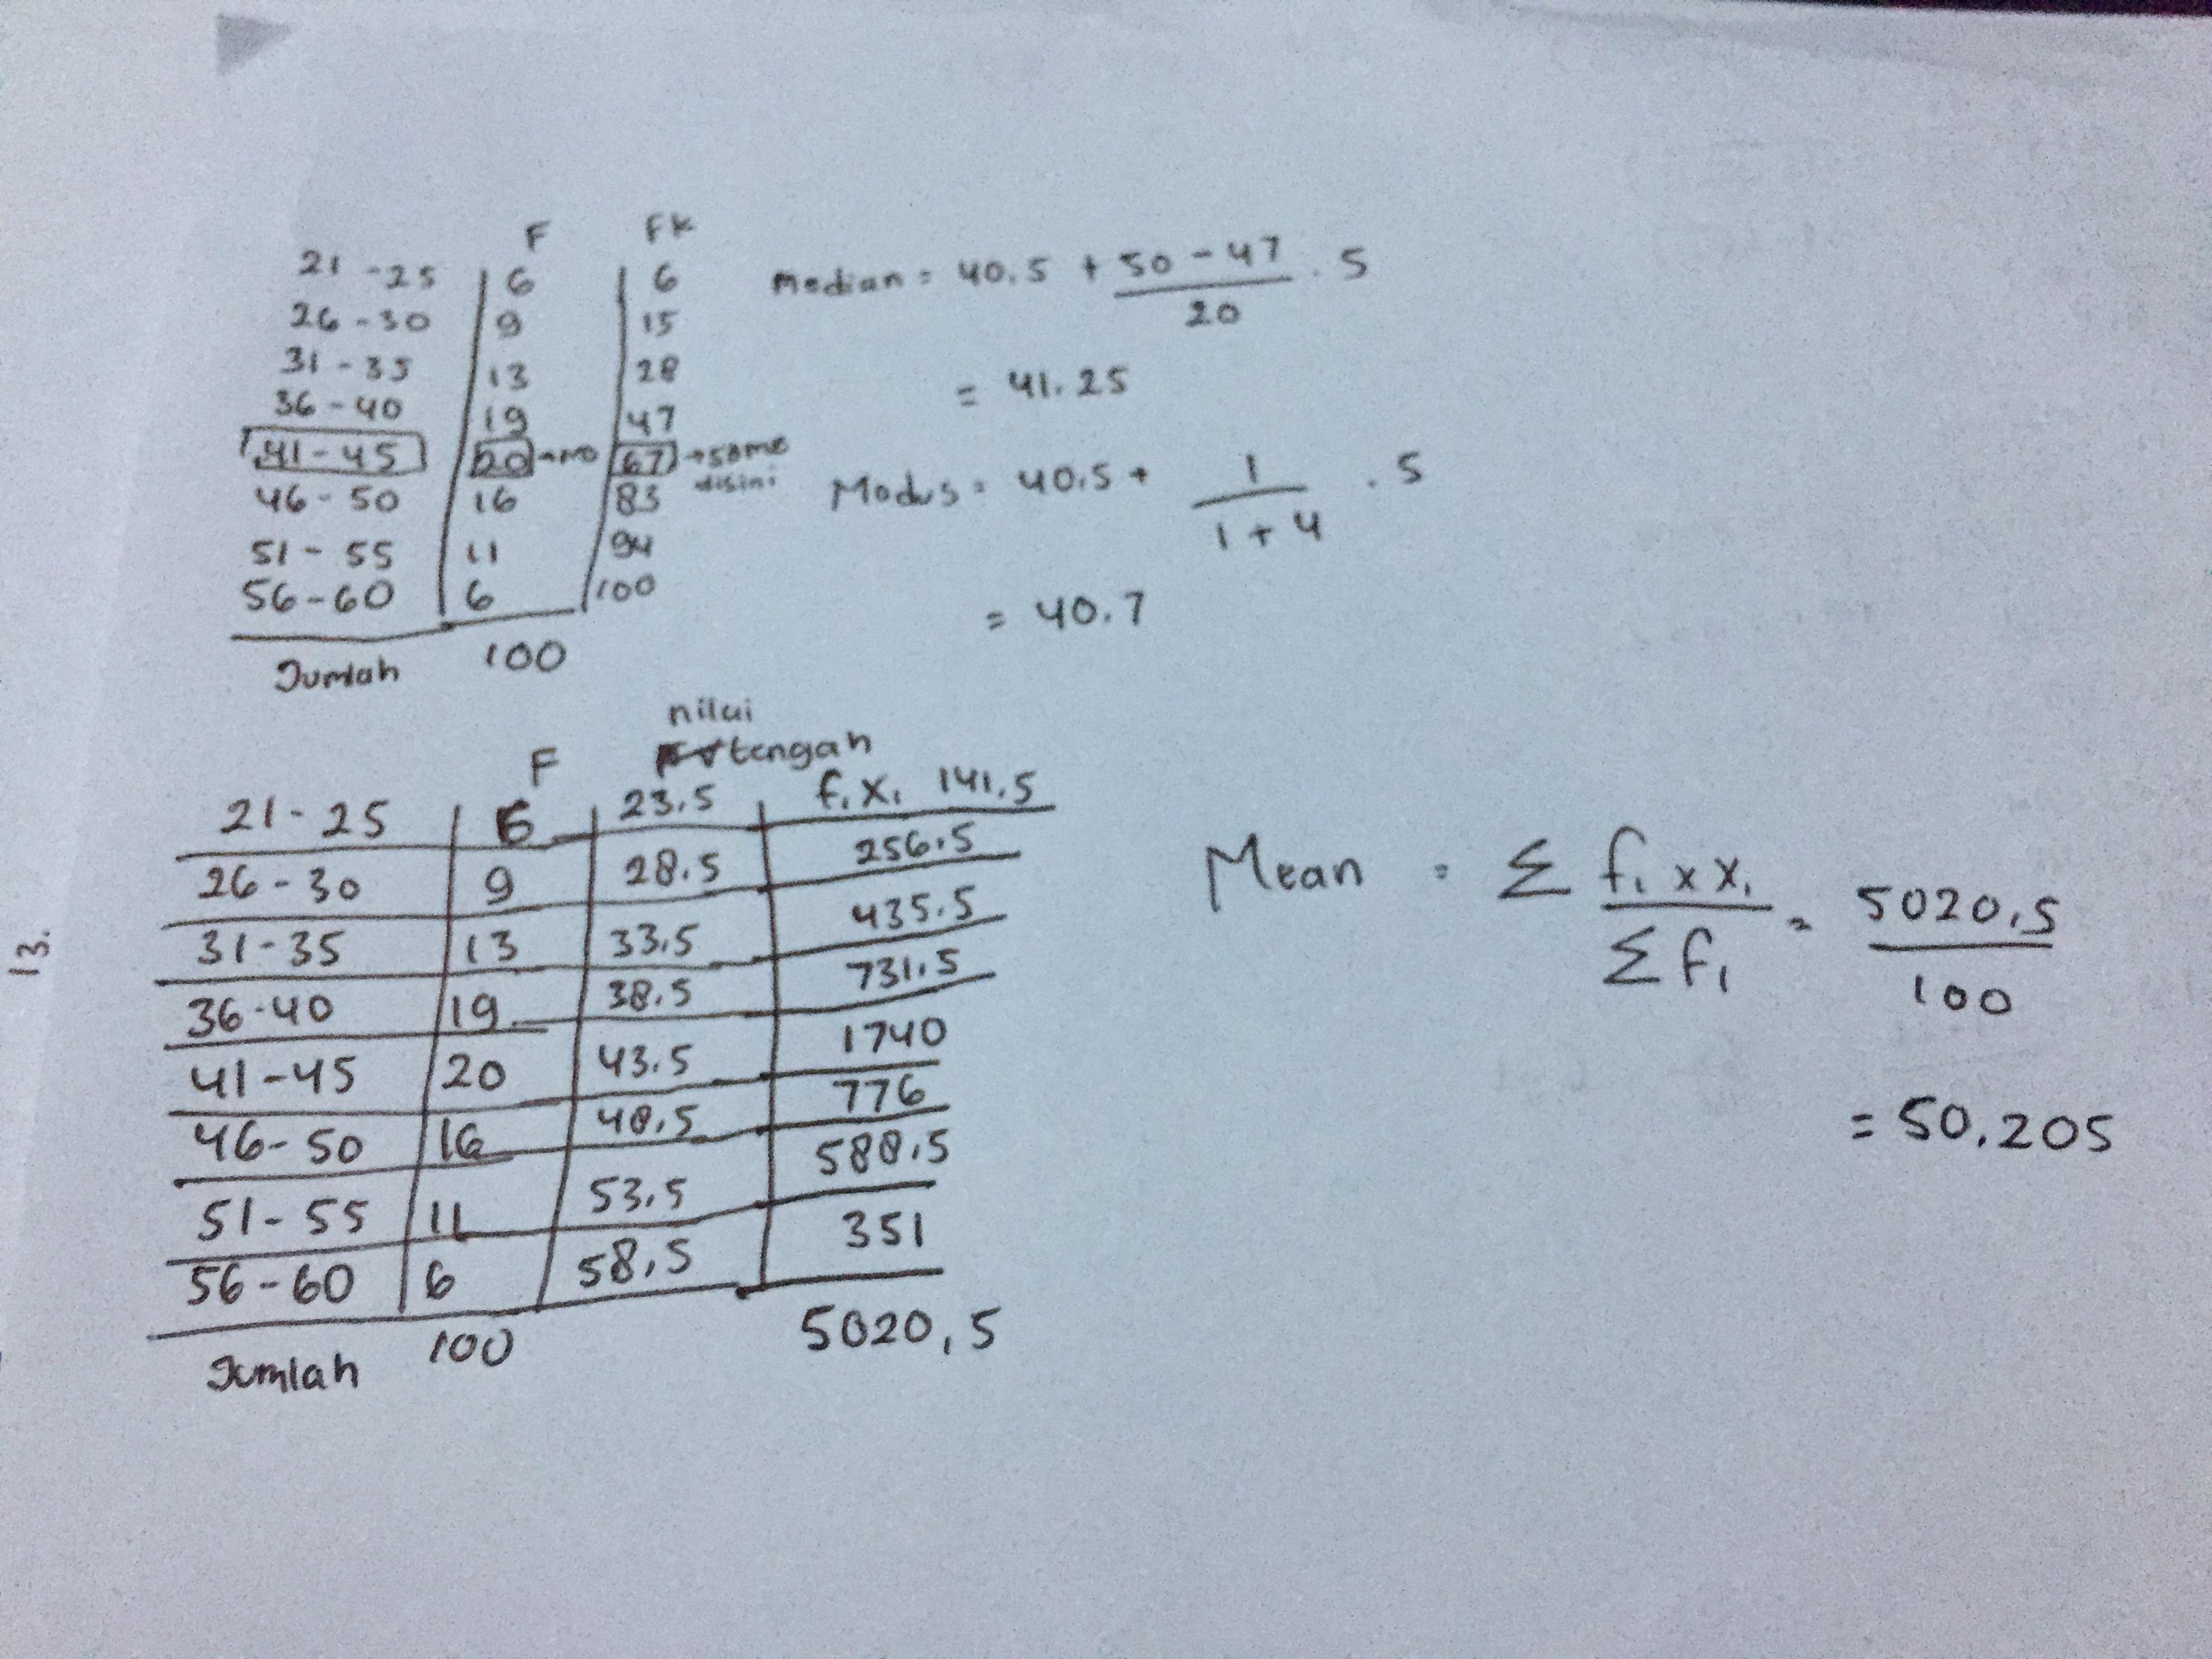 F FK
21 - 25 6 6
26 - 30 9 15
31 - 35 13 28
36 - 40 19 47
41 - 45 20 → mo 67 → some
disini
46 - 50 16 83
51 - 55 11 94
56 - 60 6 100
Jumlah 100
Median = 40.5 + 50 - 47 . 5
20
= 41.25
Modus = 40.5 + 1 . 5
1 + 4
= 40.7
13.
nilai
F tengah
21 - 25 6 23.5 f₁ X₁ 141.5
26 - 30 9 28.5 256.5
31 - 35 13 33.5 435.5
36 - 40 19 38.5 731.5
41 - 45 20 43.5 1740
46 - 50 16 48.5 776
51 - 55 11 53.5 588.5
56 - 60 6 58.5 351
Jumlah 100 5020,5
Mean = Σ f₁ x X₁ = 5020.5
Σ f₁ 100
= 50.205